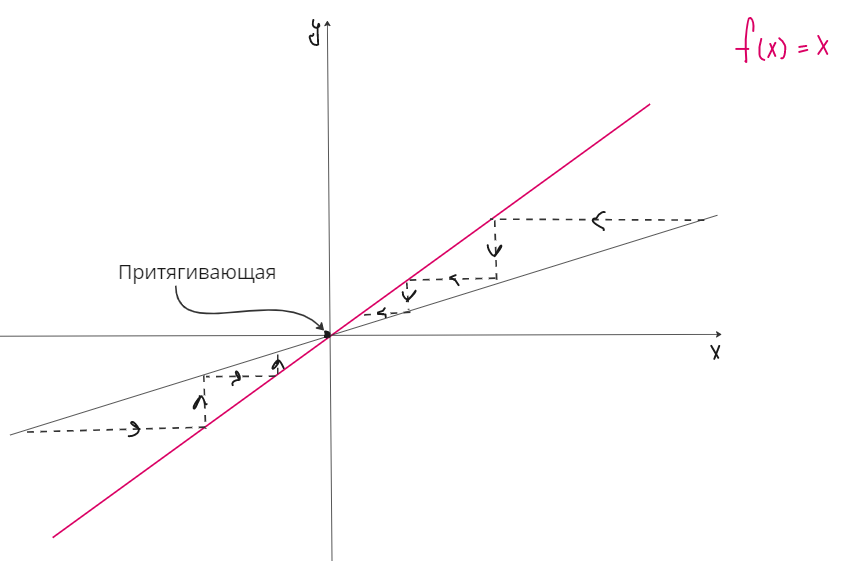 y
f(x) = x
Притягивающая
x